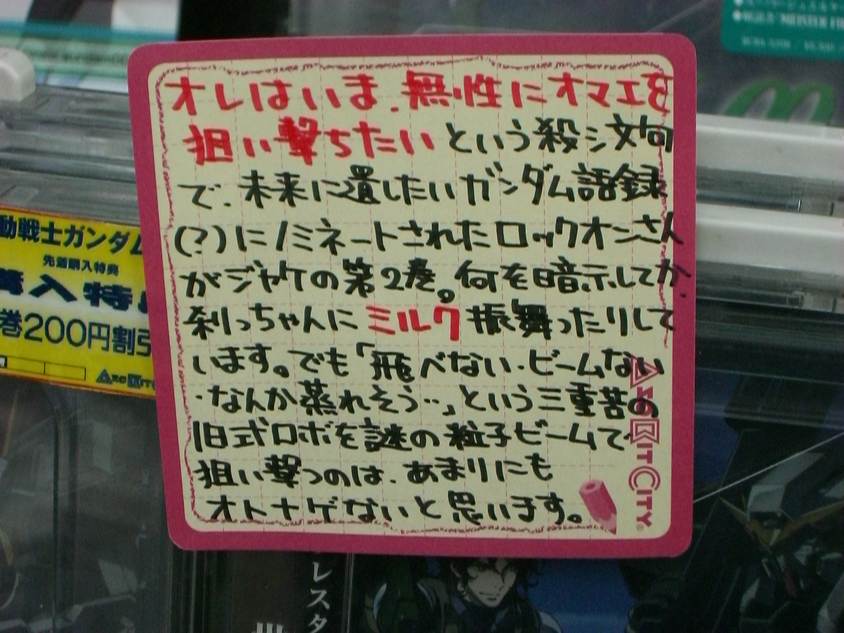 オレはいま、無性にオマエを
狙い撃ちたい という殺シ文句
で、未来に遺したいガンダム語録
(?)にノミネートされたロックオンさん
がジャケの第2巻。何を暗示してか、
刹っちゃんに ミルク 振舞ったりして
います。でも「飛べない・ビームない
・なんか蒸れそう…」という三重苦の
旧式ロボを謎の粒子ビームで
狙い撃つのは、あまりにも
オトナゲないと思います。
ARKBIT CITY
動戦士ガンダム
先着購入特典
購入特典
巻200円割引
レスタ